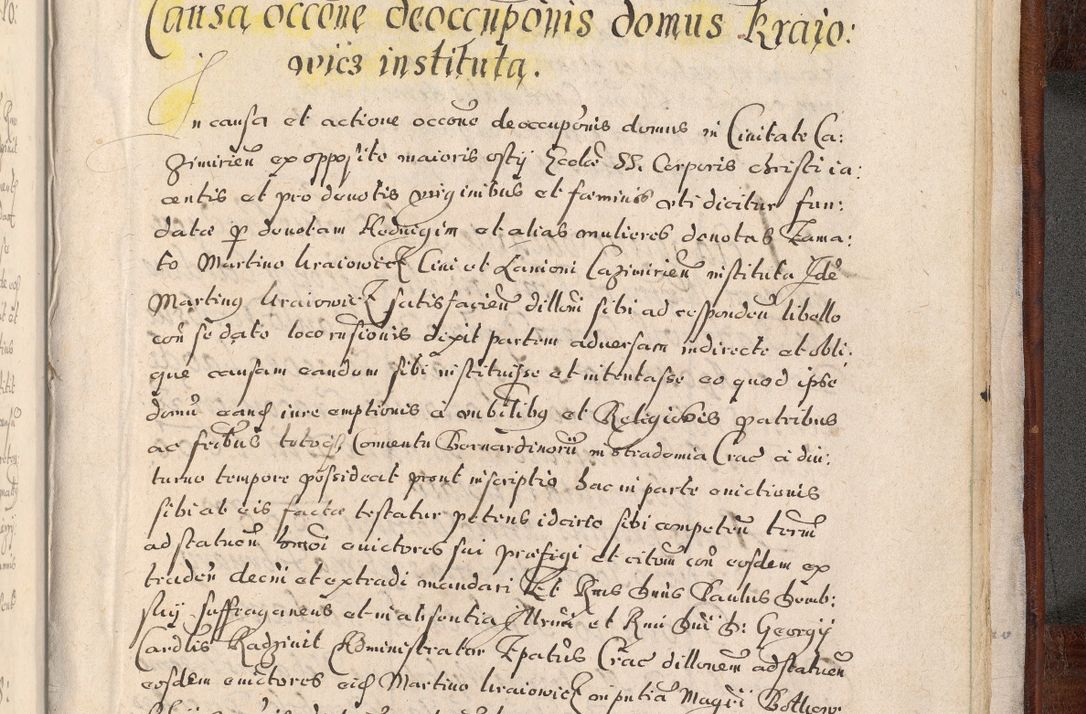 Causa occõne deoccupõnis domus Kraio:
wicz instituta.
In causa et actione occõne deoccupõnis domus in Ciuitate Ca:
zimirieñ ex opposito maioris ostij Eccłæ SS. Corporis christi ia:
centis et pro deuotis virginibus et fæminis vti dicitur fun:
datæ p deuotam Heduigim et alias mulieres deuotas Fama:
to Martino Kraiowicz Ciui et Lanioni Cazimirieñ instituta Idẽ
Martinus Kraiowicz satisfacieñ dilloni sibi ad respondeñ libello
coñ se dato locorusionis dixit partem aduersam indirecte et obli:
que causam eandem sibi instituisse et intentasse eo quod ipse
domũ eand iure emptionis à nobilibus et Religiosis patribus
ac fribus totoq Conuentu Bernardinorũ in Stradomia Crac à diu:
turno tempore possideat prout inscriptio hac in parte euictionis
sibi ab eis facta testatur petens idcirco sibi competeñ termi
ad statueñ huoi euictores sui præfigi et citoñ coñ eosdem ex
tradeñ decni et extradi mandari Et Rms Dnus Paulus Domb:
skij suffraganeus et in absentia Illrmi et Rmi Dni D: Georgij
Cardlis Radziuil Administrator Epatus Crac dillonem ad statueñ
eosdem euictores eid Martino Kraiowicz in pntia Magri